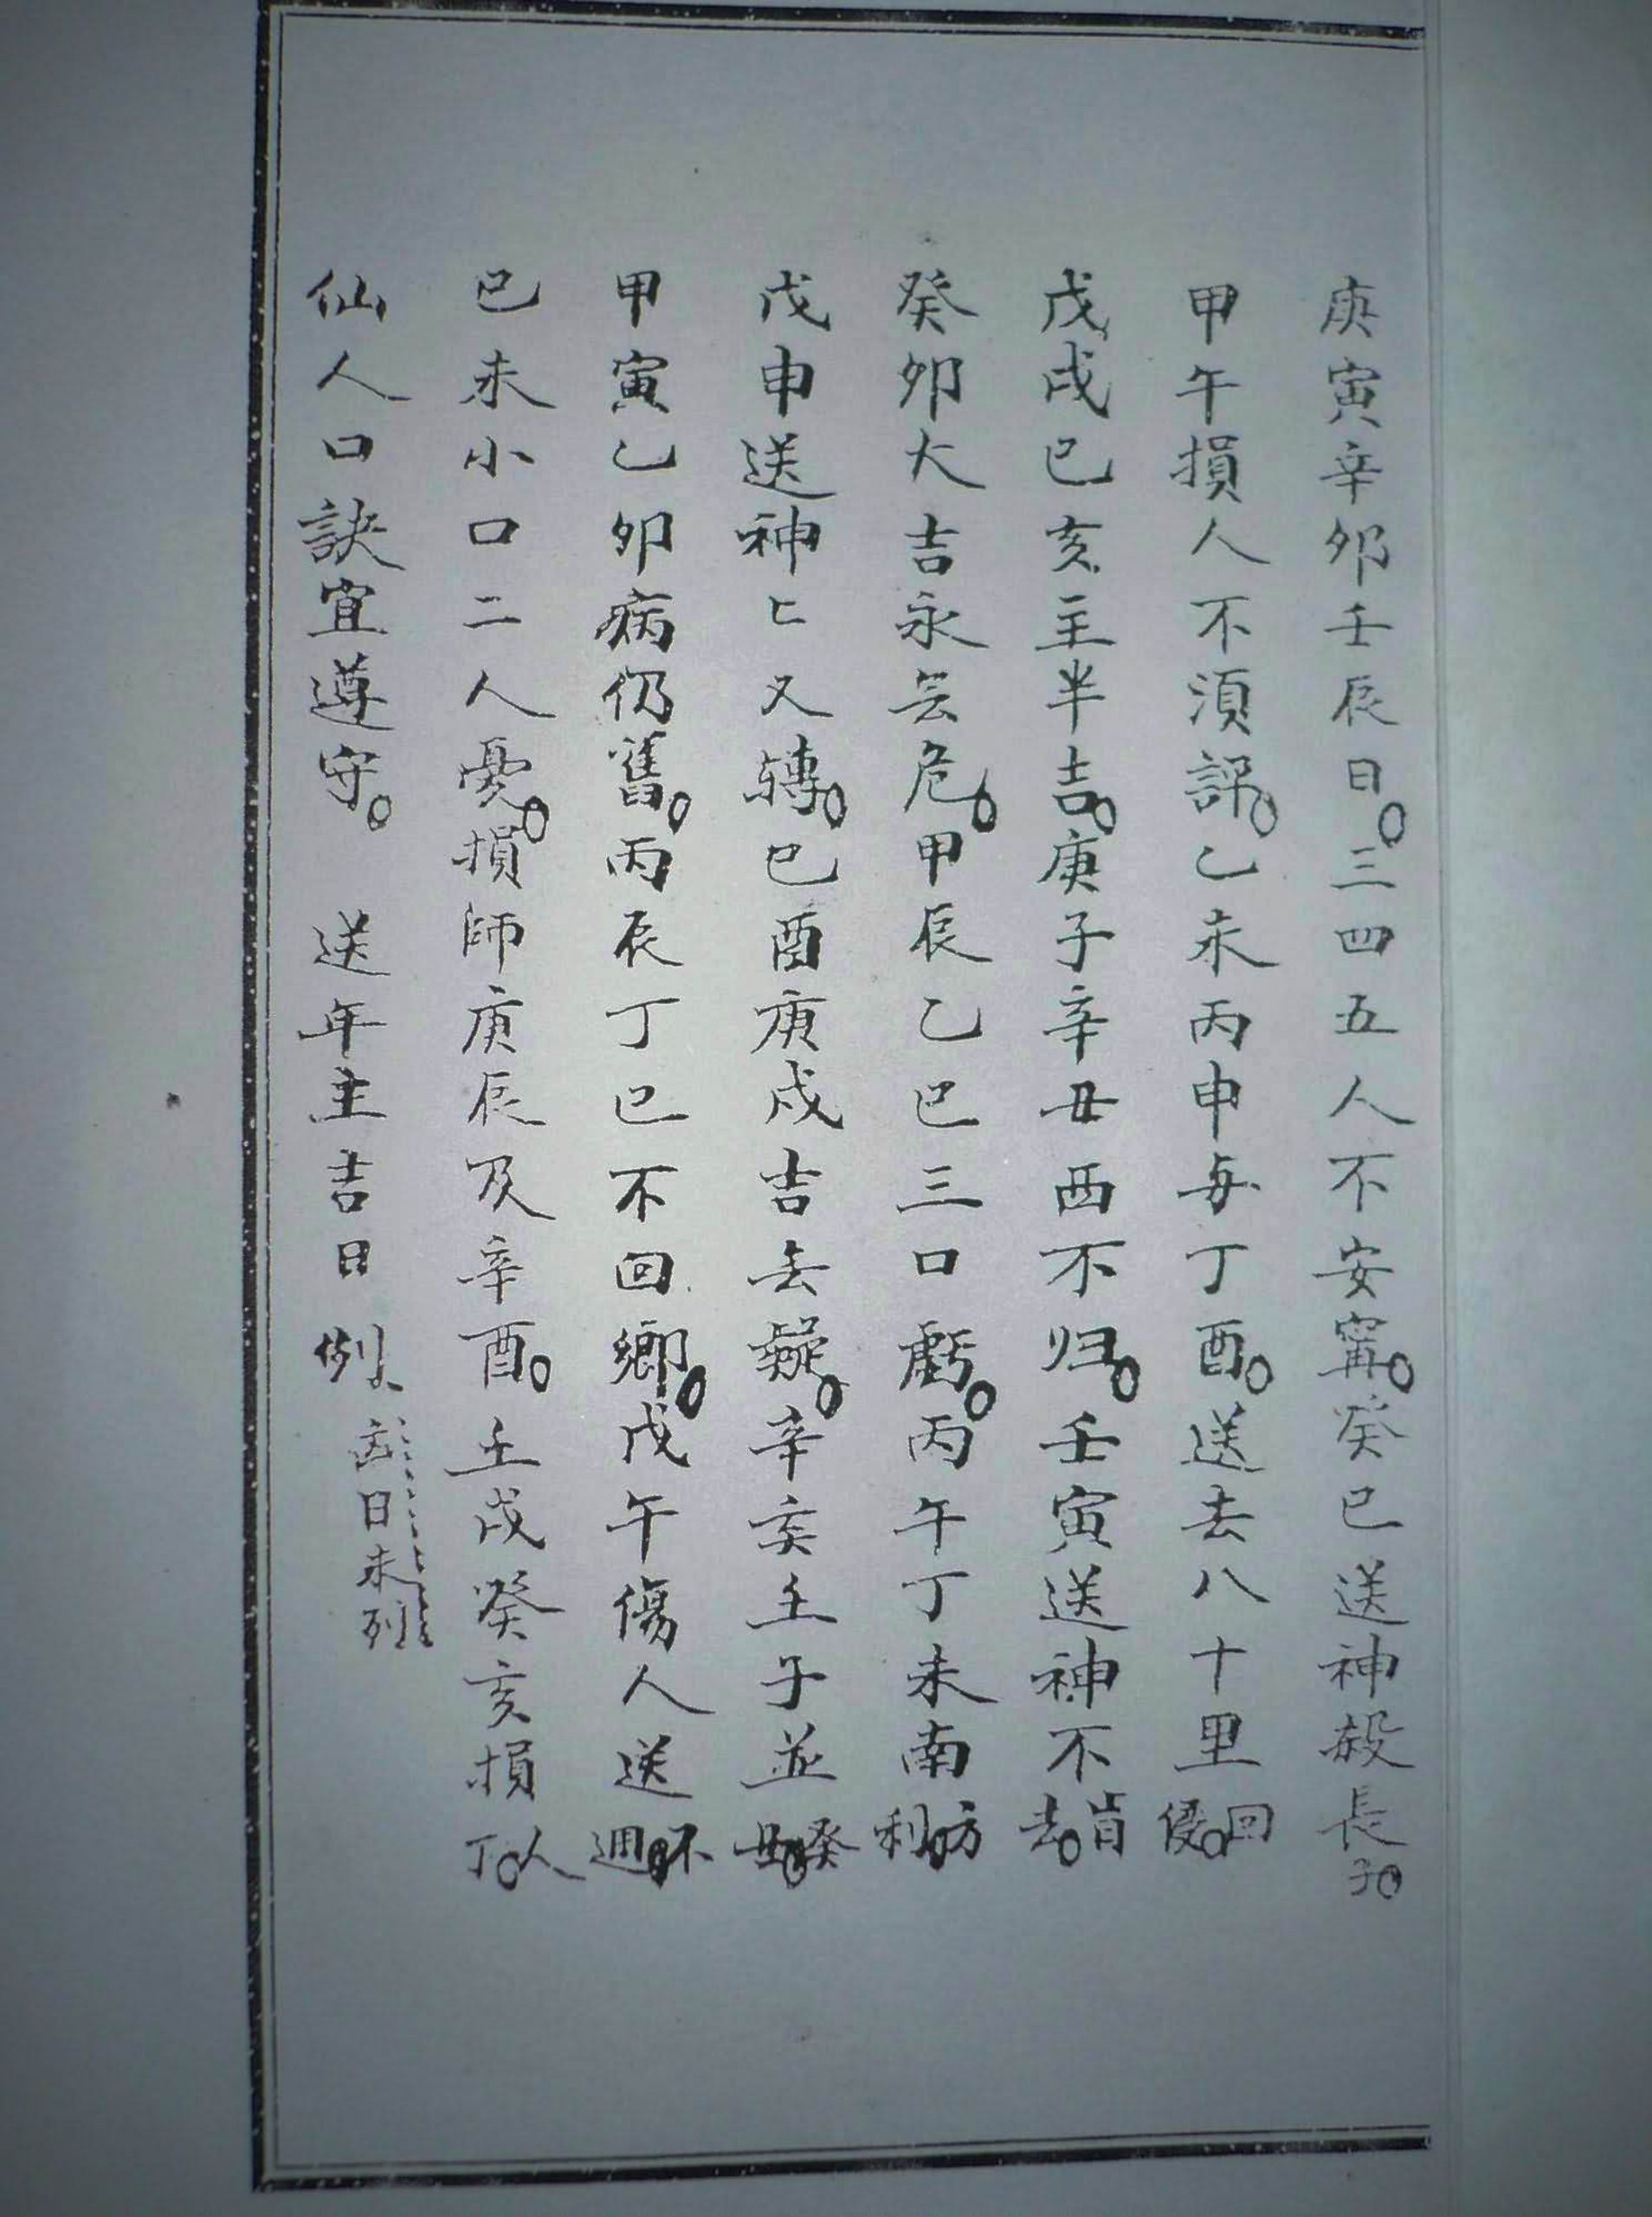 庚寅辛卯壬辰日。三四五人不安寗。癸巳送神殺長子。
甲午損人不須評。乙未丙申与丁酉。送去八十里回侵。
戊戌巳亥主半吉。庚子辛丑西不归。壬寅送神不肯去。
癸卯大吉永无危。甲辰乙巳三口虧。丙午丁未南方利。
戊申送神匕又轉。巳酉庚戌吉无疑。辛亥壬子並癸丑。
甲寅乙卯病仍舊。丙辰丁巳不回鄉。戊午傷人送不週。
已未小口二人憂。損師庚辰及辛酉。壬戌癸亥損人丁。
仙人口訣宜遵守。 送年主吉日例、
日未列